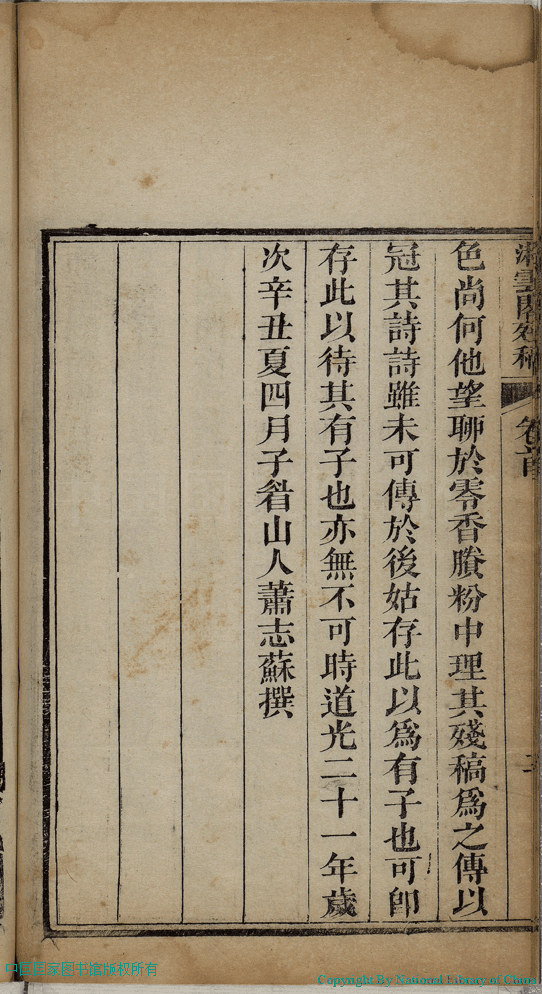 雲閣
卷首
色尚何他望聊於零香賸粉中理其殘稿爲之傳以
冠其詩詩雖未可傳於後姑存此以爲有子也可卽
存此以待其有子也亦無不可時道光二十一年歲
次辛丑夏四月子睂山人蕭志蘇撰
中国国家图书馆版权所有
Copyright By National Library of China